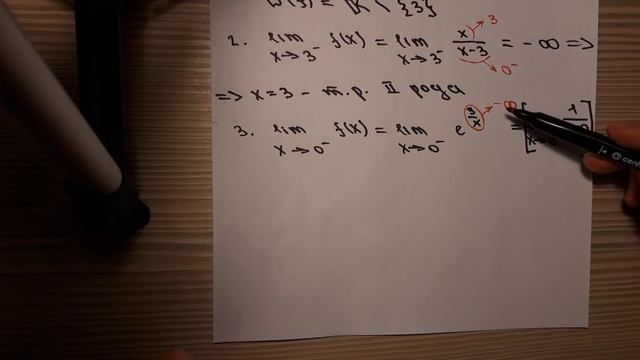 D(f) = R \ {3}
2. lim x→3⁻ f(x) = lim x→3⁻ x/(x-3) = -∞ =>
3
0⁻
=> x=3 - т.р. II рода
3. lim x→0⁻ f(x) = lim x→0⁻ e^(3/x) = [
-∞